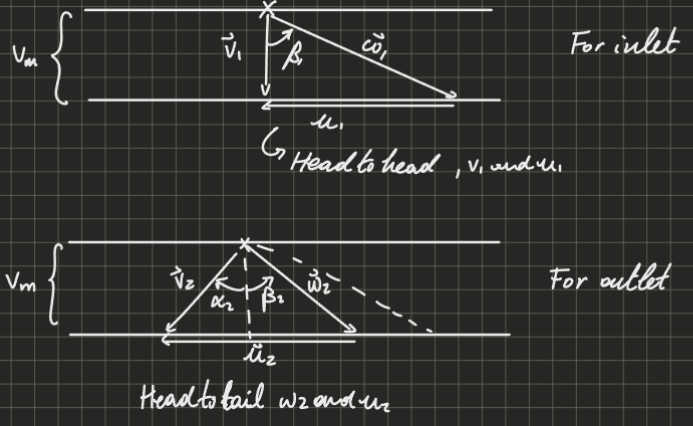 V⃗₁
β₁
ω⃗₁
Vₘ
For inlet
u₁
Head to head , v₁ and u₁
Vₘ
V⃗₂
α₂
β₂
w⃗₂
For outlet
u⃗₂
Head to tail w₂ and u₂